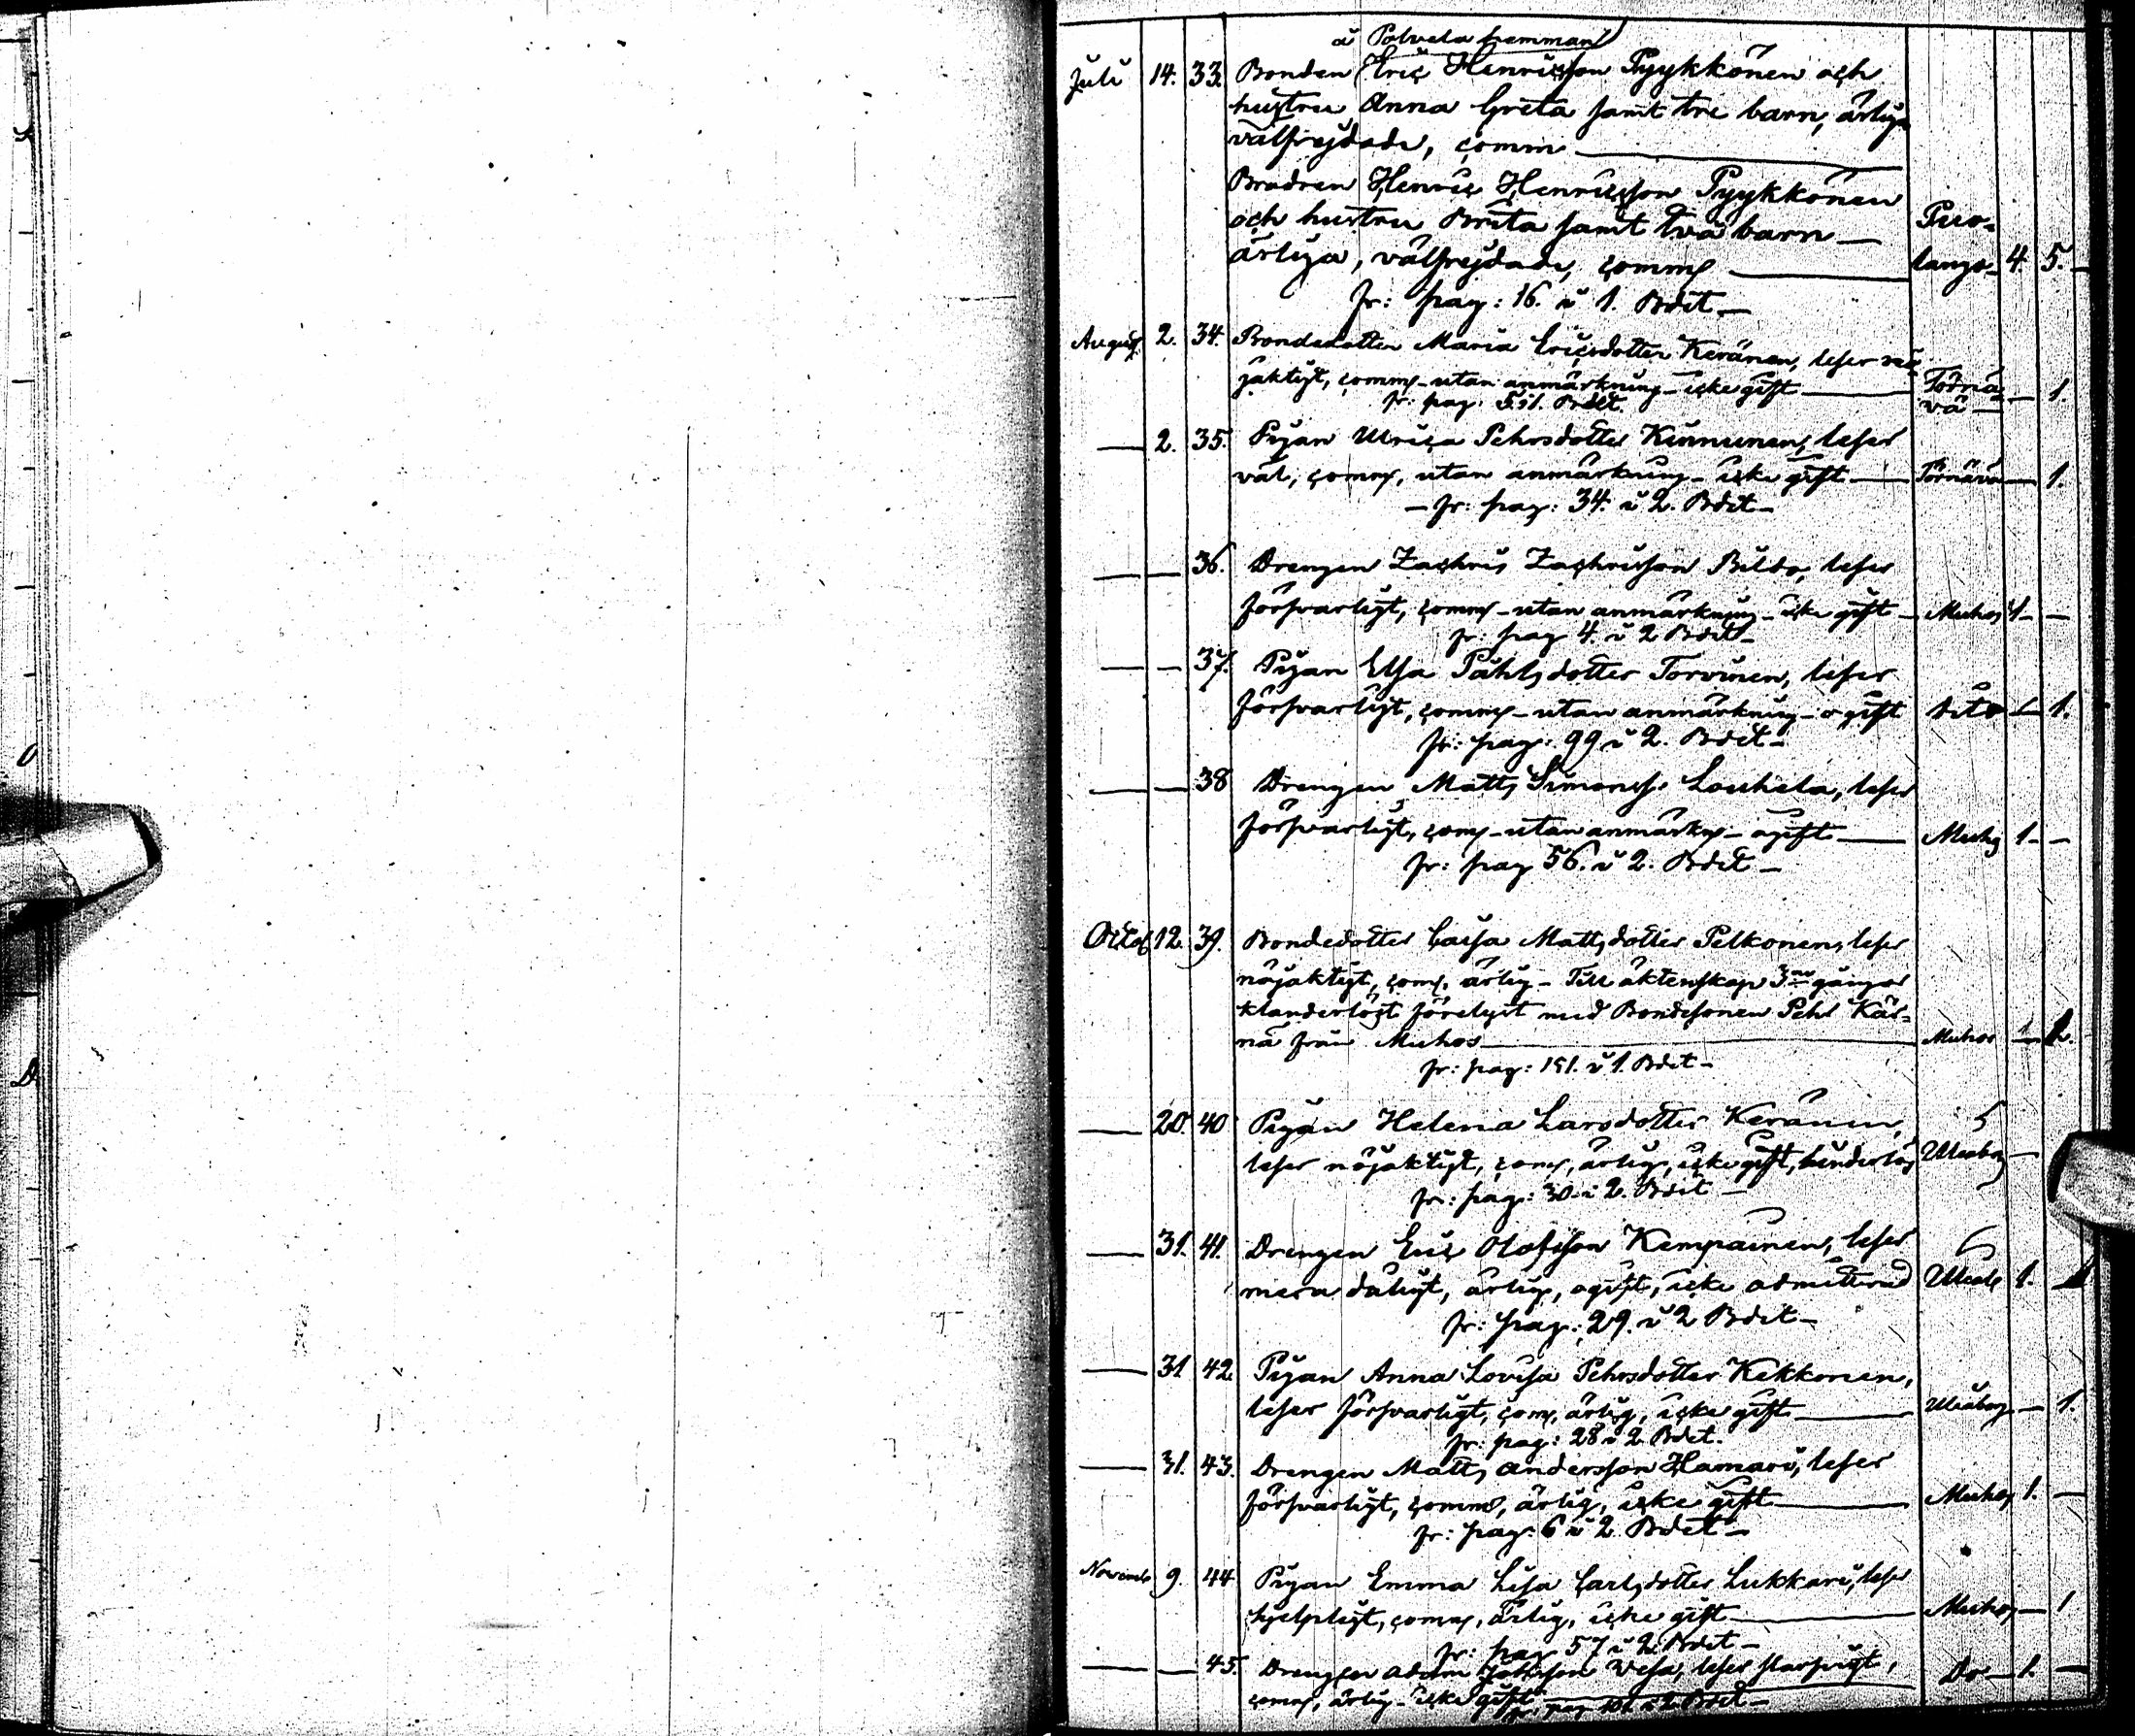 å Polvela hemman
Juli 14. 33. Bonden Eric Henricsson Pyykkönen och
hustru Anna Greta samt tre barn, ärliga
välfrejdade, comm
Brodren Henric Henricsson Pyykkönen
och hustru Brita samt två barn — Puo-
ärliga, välfrejdade, comm — lango 4. 5.
fr: pag: 16. i 1. Bdet —
August 2. 34. Bondedotter Maria Ericsdotter Keränen, läser nöj-
jaktigt, comm — utan anmärkning — icke gift — Törnä-
vä — 1.
fr: pag: 1. Bdet.
— 2. 35. Pigan Ulrica Pehrsdotter Kinnunen, läser
väl, comm, utan anmärkning — icke gift — Törnävä — 1.
— fr: pag: 34. i 2. Bdet —
— — 36. Drengen Zachris Zachrisson Bildo, läser
försvarligt, comm — utan anmärkning — icke gift — Muhos 1 —
fr: pag 4. i 2 Bdet —
— — 37. Pigan Elsa Påhlsdotter Torvinen, läser
försvarligt, comm — utan anmärkning — ogift dito — 1.
fr: pag: 99 i 2. Bdet —
— — 38 Drengen Matts Simonss. Louhela, läser
försvarligt, comm — utan anmärkn — ogift — Muhos 1 —
fr: pag 56. i 2. Bdet —
Octob 12. 39. Bondedotter Caisa Mattsdotter Pelkonen, läser
nöjaktigt, comm, ärlig — Till äktenskap 3ne gånger
klanderlöst förelyst med Bondesonen Pehr Kär-
nä från Muhos — Muhos — 1.
fr: pag: 151. i 1. Bdet —
— 20. 40 Pigan Helena Larsdotter Keränen,
läser nöjaktigt, comm, ärlig, icke gift, hinderlös Uleåborg —
fr: pag: 30. i 2. Bdet —
— 31. 41. Drengen Eric Olofsson Kempainen, läser
mera dåligt, ärlig, ogift, icke admitterad Uleåb 1. —
fr: pag: 29. i 2 Bdet —
— 31 42. Pigan Anna Lovisa Pehrsdotter Kekkonen,
läser försvarligt, comm, ärlig, icke gift — Uleåborg — 1.
fr: pag: 28 i 2 Bdet.
— 31. 43. Drengen Matts Andersson Hamari, läser
försvarligt, comm, ärlig, icke gift — Muhos 1. —
fr: pag: 6 i 2 Bdet —
Novemb 9. 44 Pigan Emma Lisa Carlsdotter Lukkari, läser
hjelpligt, comm, ärlig, icke gift — Muhos — 1
fr: pag 57 i 2 Bdet —
— — 45. Drengen Adam Johnsson Vesa, läser,
comm, ärlig — icke gift Do — 1. —
fr: pag i 2 Bdet —